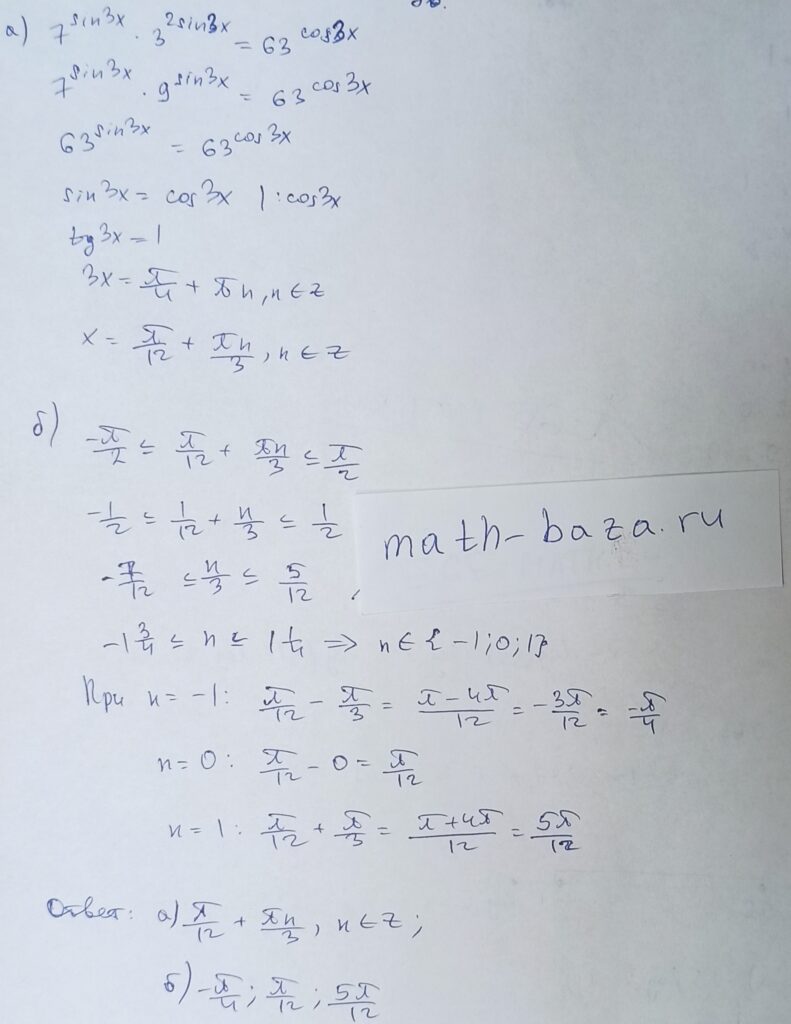 а) 7^sin3x · 3^2sin3x = 63^cos3x
7^sin3x · 9^sin3x = 63^cos3x
63^sin3x = 63^cos3x
sin3x = cos3x | : cos3x
tg3x = 1
3x = π/4 + πn, n ∈ Z
x = π/12 + πn/3, n ∈ Z
б) -π/2 ≤ π/12 + πn/3 ≤ π/2
-1/2 ≤ 1/12 + n/3 ≤ 1/2
math-baza.ru
-7/12 ≤ n/3 ≤ 5/12
-1 3/4 ≤ n ≤ 1 1/4 => n ∈ {-1; 0; 1}
При n = -1: π/12 - π/3 = π-4π/12 = -3π/12 = -π/4
n = 0: π/12 - 0 = π/12
n = 1: π/12 + π/3 = π+4π/12 = 5π/12
Ответ: а) π/12 + πn/3, n ∈ Z;
б) -π/4; π/12; 5π/12